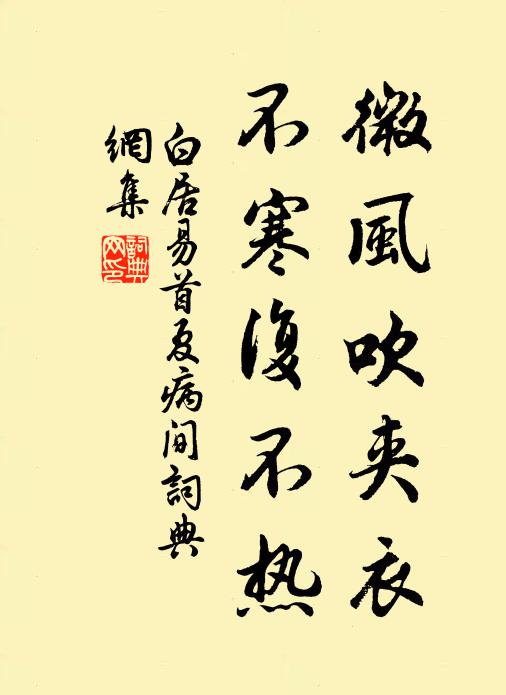 微風吹夹衣
不寒復不热
白居易首夏病间詞典
網集
詞典
网印